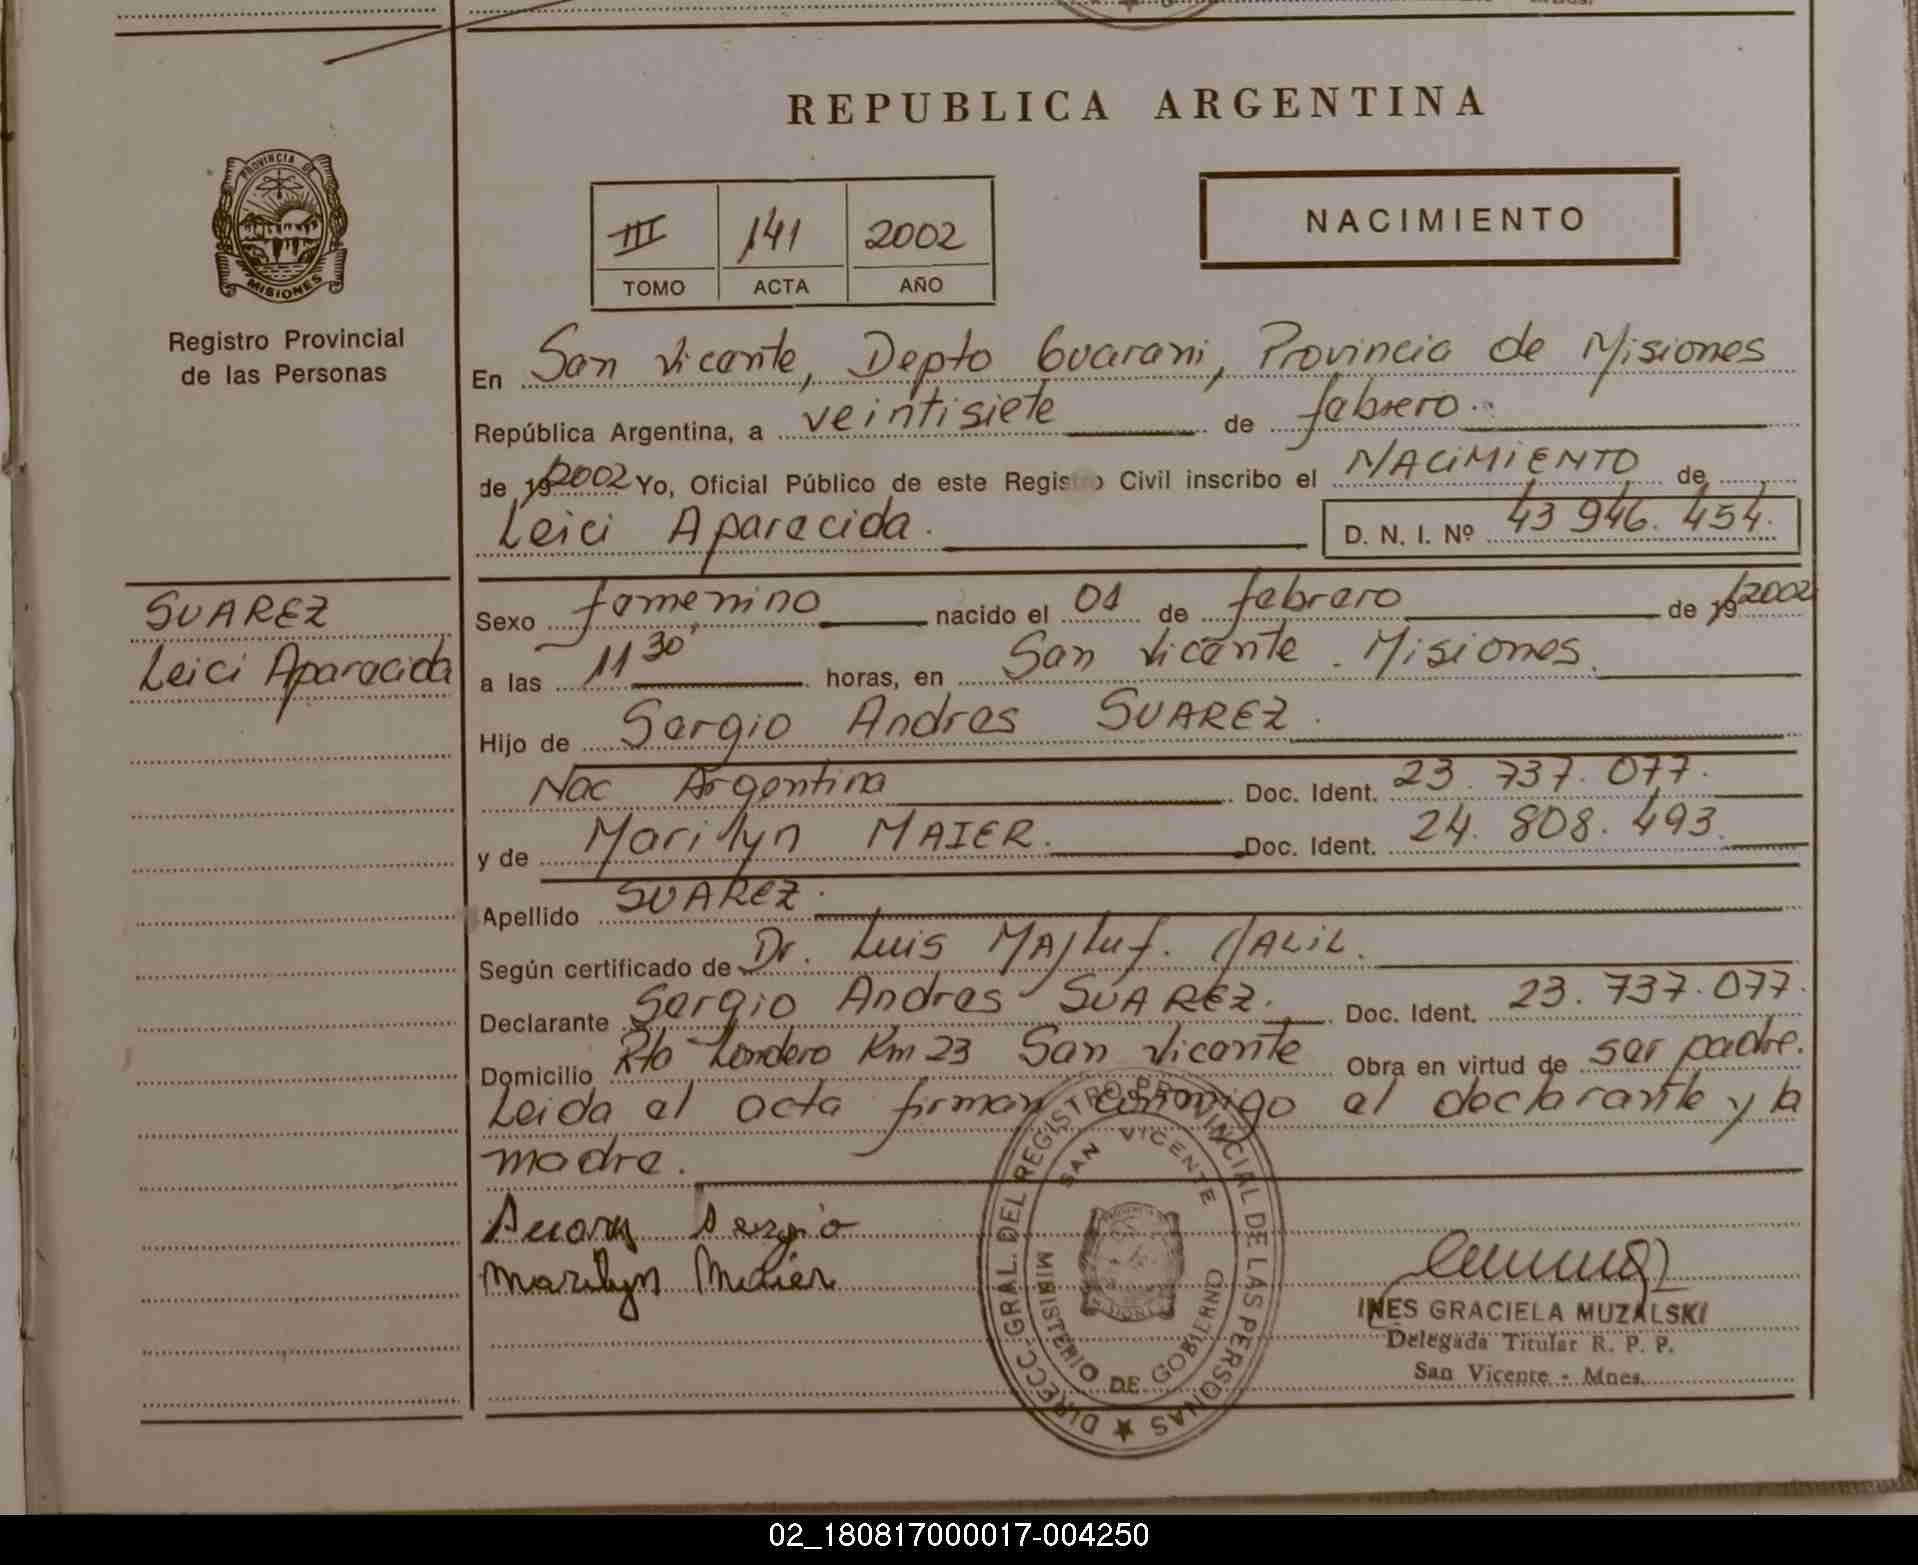 REPUBLICA ARGENTINA
PROVINCIA DE
MISIONES
Registro Provincial
de las Personas
III 141 2002
TOMO ACTA AÑO
NACIMIENTO
En San Vicente, Depto Guarani, Provincia de Misiones
República Argentina, a veintisiete de febrero.
de 19/2002 Yo, Oficial Público de este Registro Civil inscribo el NACIMIENTO de
Leici Aparecida. D. N. I. Nº 43 946. 454.
SUAREZ
Leici Aparecida
Sexo femenino nacido el 01 de febrero de 19/2002
a las 11 30' horas, en San Vicente. Misiones.
Hijo de Sergio Andres SUAREZ.
Nac Argentina Doc. Ident. 23. 737. 077.
y de Marilyn MAIER. Doc. Ident. 24. 808. 493.
Apellido SUAREZ.
Según certificado de Dr. Luis Majluf. JALIL.
Declarante Sergio Andres SUAREZ. Doc. Ident. 23. 737. 077.
Domicilio Rto Londero Km 23 San Vicente Obra en virtud de ser padre.
Leida el acta firman conmigo el declarante y la
madre.
Suarez Sergio
Marilyn Maier
DIRECC. GRAL. DEL REGISTRO PROVINCIAL DE LAS PERSONAS
SAN VICENTE
MINISTERIO DE GOBIERNO
INES GRACIELA MUZALSKI
Delegada Titular R. P. P.
San Vicente - Mnes.
02_180817000017-004250